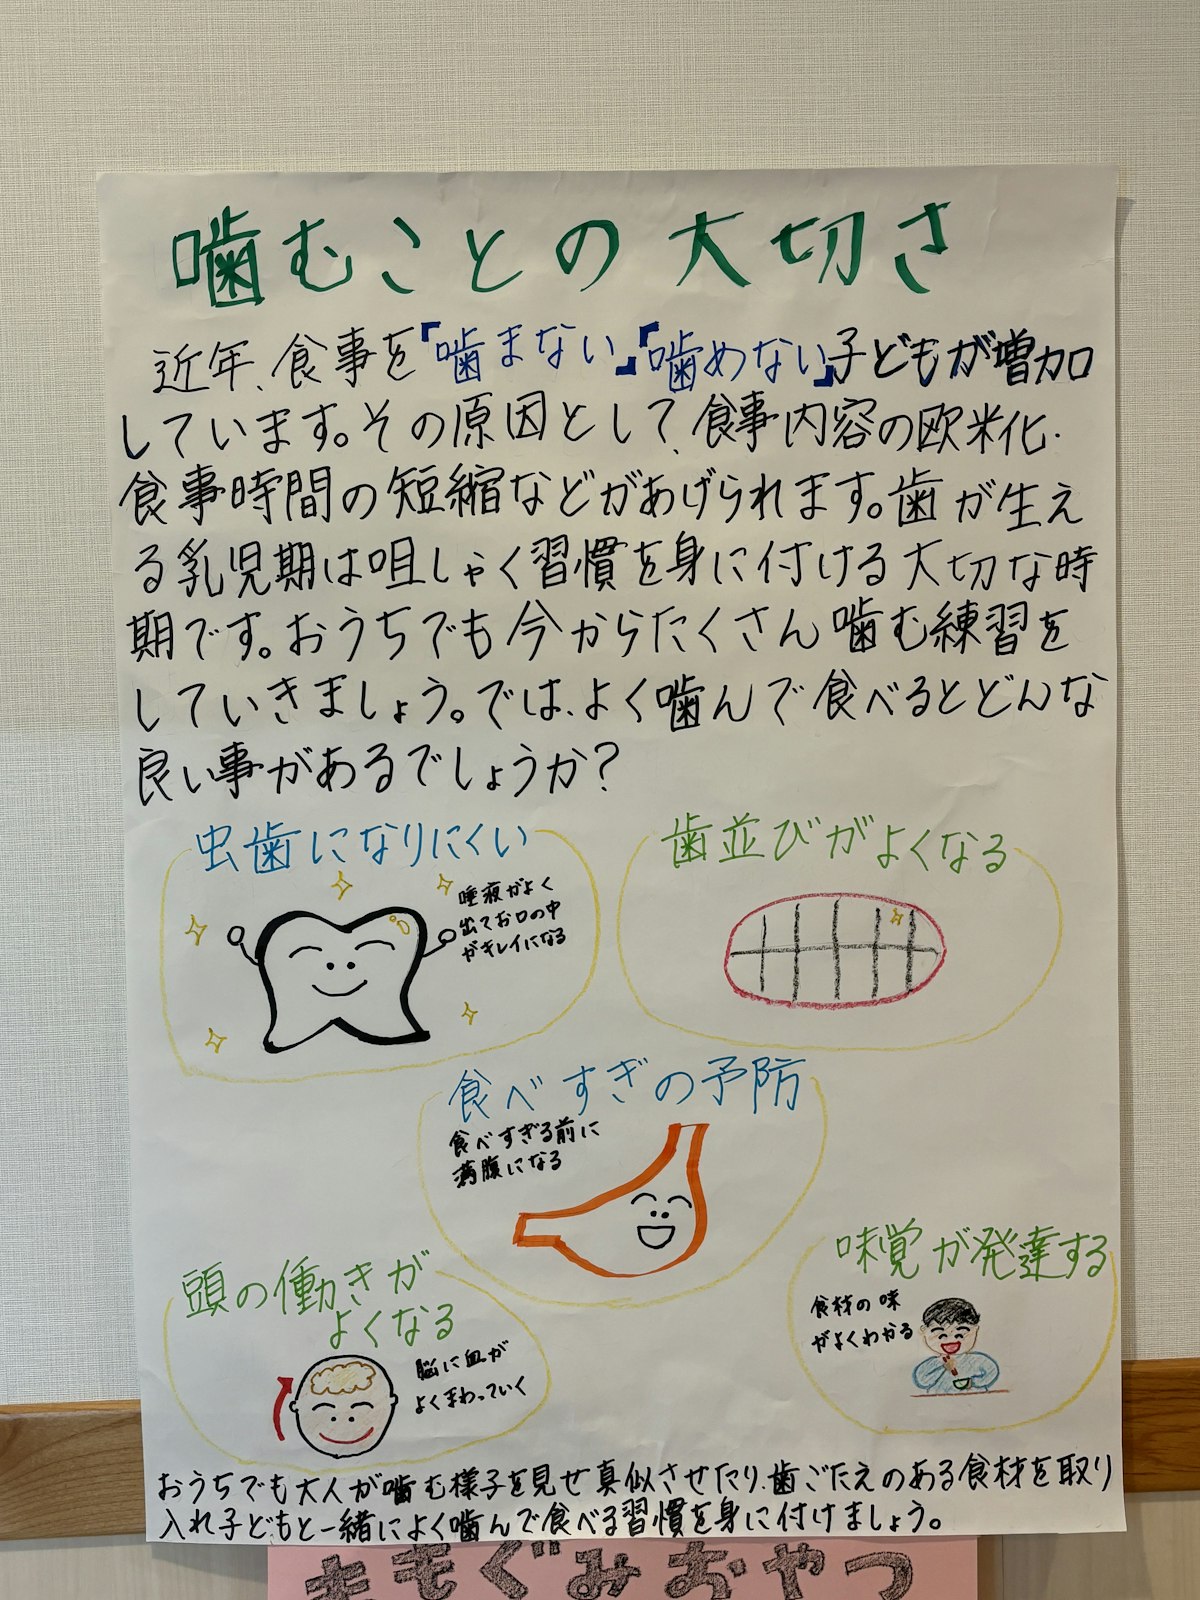 噛むことの大切さ
近年、食事を『噛まない』『噛めない』子どもが増加
しています。その原因として、食事内容の欧米化・
食事時間の短縮などがあげられます。歯が生え
る乳児期は咀しゃく習慣を身に付ける大切な時
期です。おうちでも今からたくさん噛む練習を
していきましょう。では、よく噛んで食べるとどんな
良い事があるでしょうか?
虫歯になりにくい
唾液がよく
出てお口の中
がキレイになる
歯並びがよくなる
食べすぎの予防
食べすぎる前に
満腹になる
頭の働きが
よくなる
脳に血が
よくまわっていく
味覚が発達する
食材の味
がよくわかる
おうちでも大人が噛む様子を見せ真似させたり、歯ごたえのある食材を取り
入れ子どもと一緒によく噛んで食べる習慣を身に付けましょう。
ももぐみおやつ